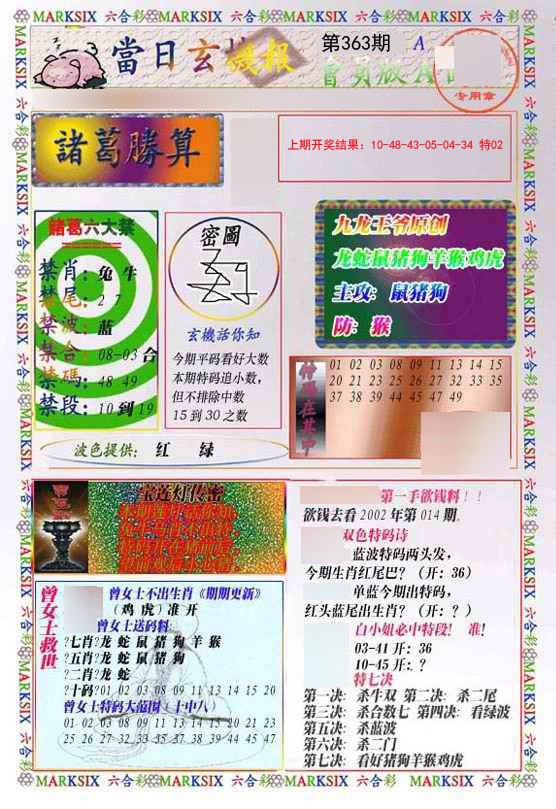 MARKSIX 六合彩 MARKSIX 六合彩 MARKSIX 六合彩 MARKSIX 六合彩
當日玄機報
第363期
A
會員版A
专用章
諸葛勝算
上期开奖结果：10-48-43-05-04-34 特02
諸葛六大禁
禁肖：兔 牛
禁尾：2 7
禁波：蓝
禁合：08-03 合
禁碼：48 49
禁段：10 到 19
密圖
玄機話你知
今期平码看好大数
本期特码追小数，
但不排除中数
15 到 30 之数
九龙王爷原创
龙蛇鼠猪狗羊猴鸡虎
主攻：鼠猪狗
防：猴
01 02 03 08 09 11 13 14 15
20 21 23 25 26 27 32 33 35
37 38 39 44 45 47 49
波色提供： 红 绿
宝莲灯传密
第一手欲钱料！！
欲钱去看 2002 年第 014 期。
双色特码诗
蓝波特码两头发，
今期生肖红尾巴？（开：36）
单蓝今期出特码，
红头蓝尾出生肖？（开：？）
白小姐必中特段！ 准！
03-41 开：36
10-45 开：？
特七决
第一决：杀牛双 第二决：杀二尾
第三决：杀合数七 第四决：看绿波
第五决：杀蓝波
第六决：杀二门
第七决：看好猪狗羊猴鸡虎
曾女士救世
曾女士不出生肖《期期更新》
（鸡 虎）准 开
曾女士送码料：
?七肖?龙 蛇 鼠 猪 狗 羊 猴
?五肖?龙 蛇 鼠 猪 狗
?二肖?龙 蛇
?十码?01 02 03 08 09 11 13 14 15 20
曾女士特码大范围（十中八）
01 02 03 08 09 11 13 14 15 20 21 23
25 26 27 32 33 35 37 38 39 44 45 47
MARKSIX 六合彩 MARKSIX 六合彩 MARKSIX 六合彩 MARKSIX 六合彩